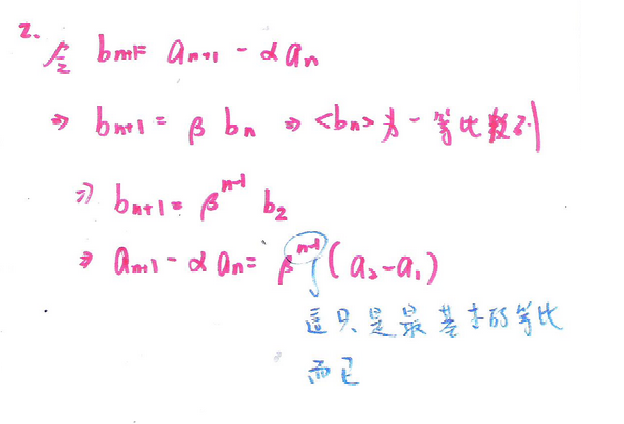 2.
令 bn+1 = an+1 - αan
⇒ bn+1 = β bn ⇒ <bn> 為一等比數列
⇒ bn+1 = β^n-1 b2
⇒ an+1 - αan = β^n-1 (a2-a1)
這只是最基本的等比
而已